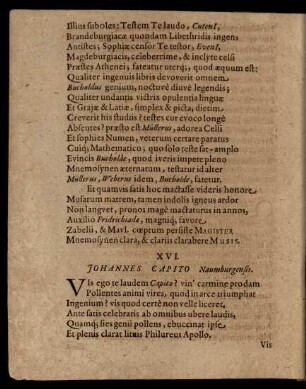 Illius suboles: Testem Te laudo, Cuteni,
Brandeburgiacæ quondam Libetfuridis ingens
Antistes; Sophiæ censor Te testor, Eveni,
Magdeburgiacis, celeberrime, & inclyte celsi
Præstes Athenei, fateatur uterq;, quod æquum est:
Qualiter ingenuis libris devoverit omnem
Bucholdus genium, noctuvè diuvè legendis;
Qualiter undantis victrix opulentia linguæ
Et Grajæ & Latiæ, simplex & picta, dietim
Creverit his studiis? testes cur evoco longè
Absentes? præsto est Müllerus, adorea Celli
Et sophies Numen, veterum certare paratus
Cuiq; Mathematico; quo solo teste sat-amplo
Evincis Bucholde, quod iveris impete pleno
Mnemosynen æternatam, testatur id alter
Müllerus, Weberus idem, Bucholde, fatetur.
Et quamvis satis hoc mactasse videris honore
Musarum matrem, tamen indolis igneus ardor
Non langvet, pronos magè mactaturus in annos,
Auxilio Fridrichiade, magniq; favore
Zabelii, & Mavl. cœptum persiste MAGISTER
Mnemosynen clarâ, & clariis clarabere MUSIS.
XVI.
JOHANNES CAPITO Naumburgensis.
Vis ego te laudem Capito? vin' carmine prodam
Pollentes animi vires, quod in arce triumphat
Ingenium? vis quod certè non velle liceret,
Ante satis celebratis ab omnibus ubere laudis,
Quamq; sies genii pollens, ebuccinat ipse
Et plenis clarat lituis Philureus Apollo.
Vis